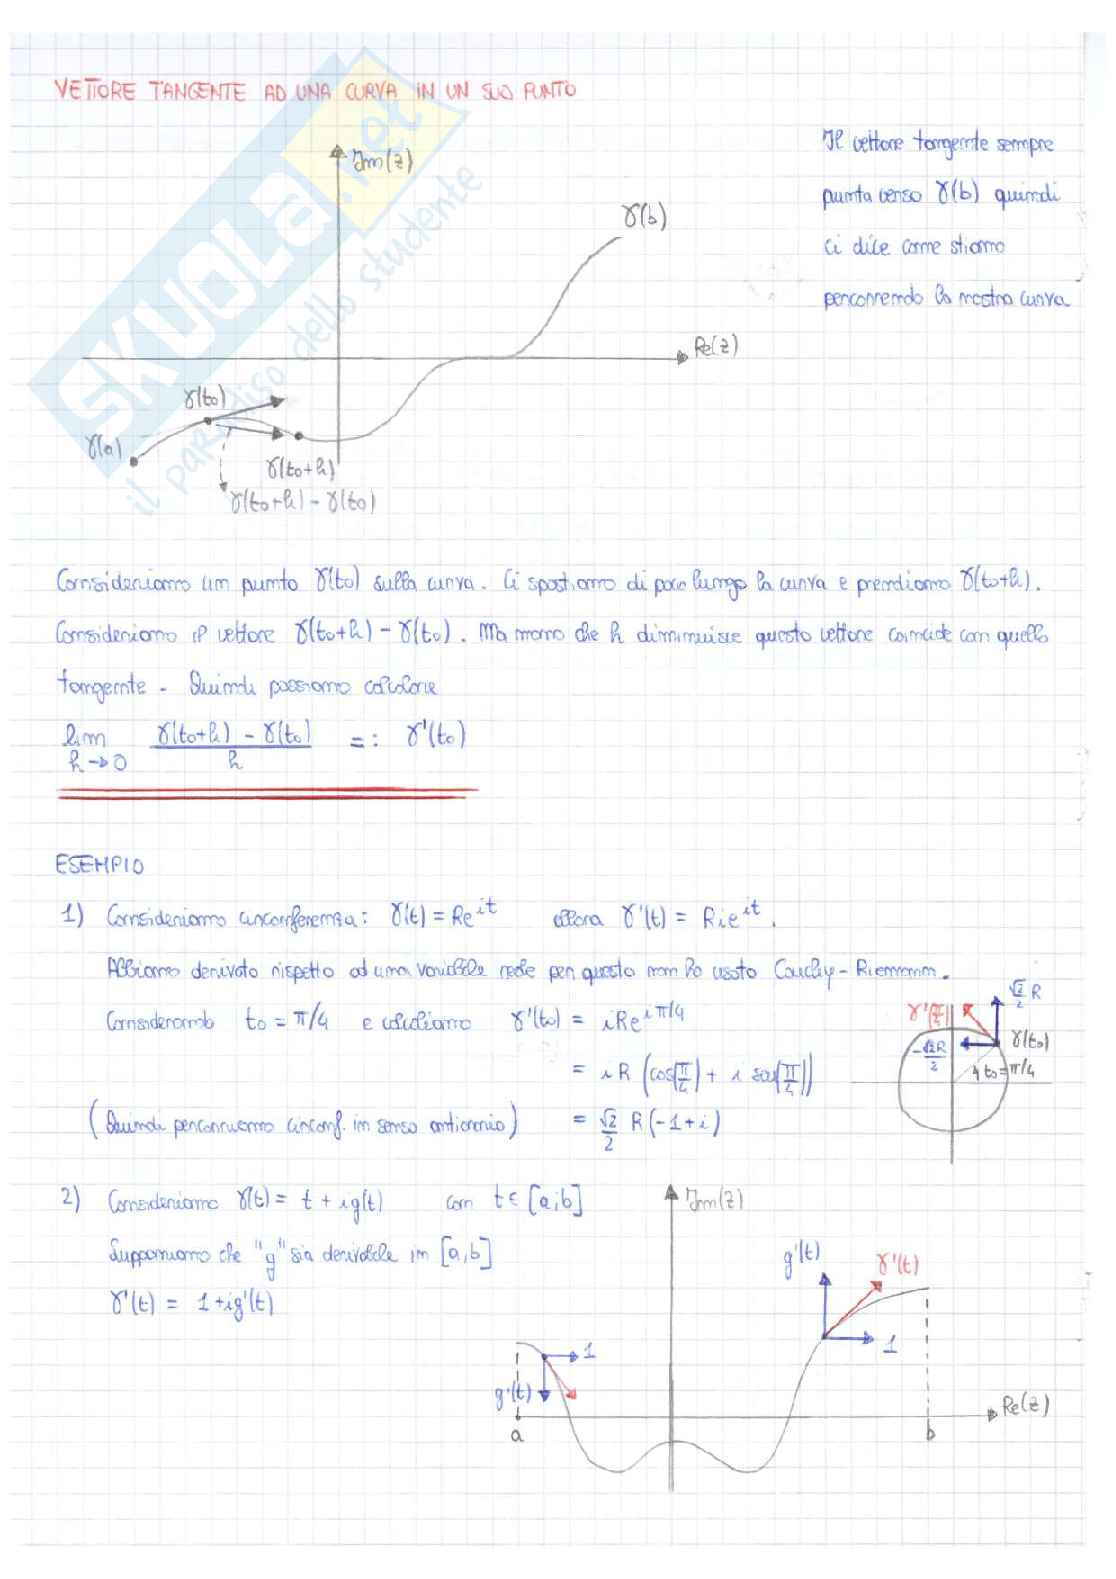 VETTORE TANGENTE AD UNA CURVA IN UN SUO PUNTO
SKUOLA.net
il paradiso dello studente
Il vettore tangente sempre
punta verso γ(b) quindi
ci dice come stiamo
percorrendo la nostra curva
Im(z)
γ(b)
Re(z)
γ(t₀)
γ(a)
γ(t₀+h)
γ(t₀+h) - γ(t₀)
Consideriamo un punto γ(t₀) sulla curva. Ci spostiamo di poco lungo la curva e prendiamo γ(t₀+h).
Consideriamo il vettore γ(t₀+h) - γ(t₀). Ma mano che h diminuisce questo vettore coincide con quello
tangente. Quindi possiamo calcolare
lim h→0 (γ(t₀+h) - γ(t₀))/h =: γ'(t₀)
ESEMPIO
1) Consideriamo circonferenza: γ(t) = Re^{it} allora γ'(t) = Rie^{it}.
Abbiamo derivato rispetto ad una variabile reale per questo non ho usato Cauchy-Riemann.
Considerando t₀ = π/4 e calcoliamo γ'(t₀) = iRe^{iπ/4}
= iR (cos(π/4) + i sen(π/4))
(Quindi percorriamo circonf. in senso antiorario) = √2/2 R(-1+i)
√2/2 R
γ'(π/4)
-√2R/2
γ(t₀)
t₀=π/4
2) Consideriamo γ(t) = t + ig(t) con t ∈ [a,b]
Supponiamo che "g" sia derivabile in [a,b]
γ'(t) = 1+ig'(t)
Im(z)
g'(t)
γ'(t)
1
1
g'(t)
Re(z)
a
b